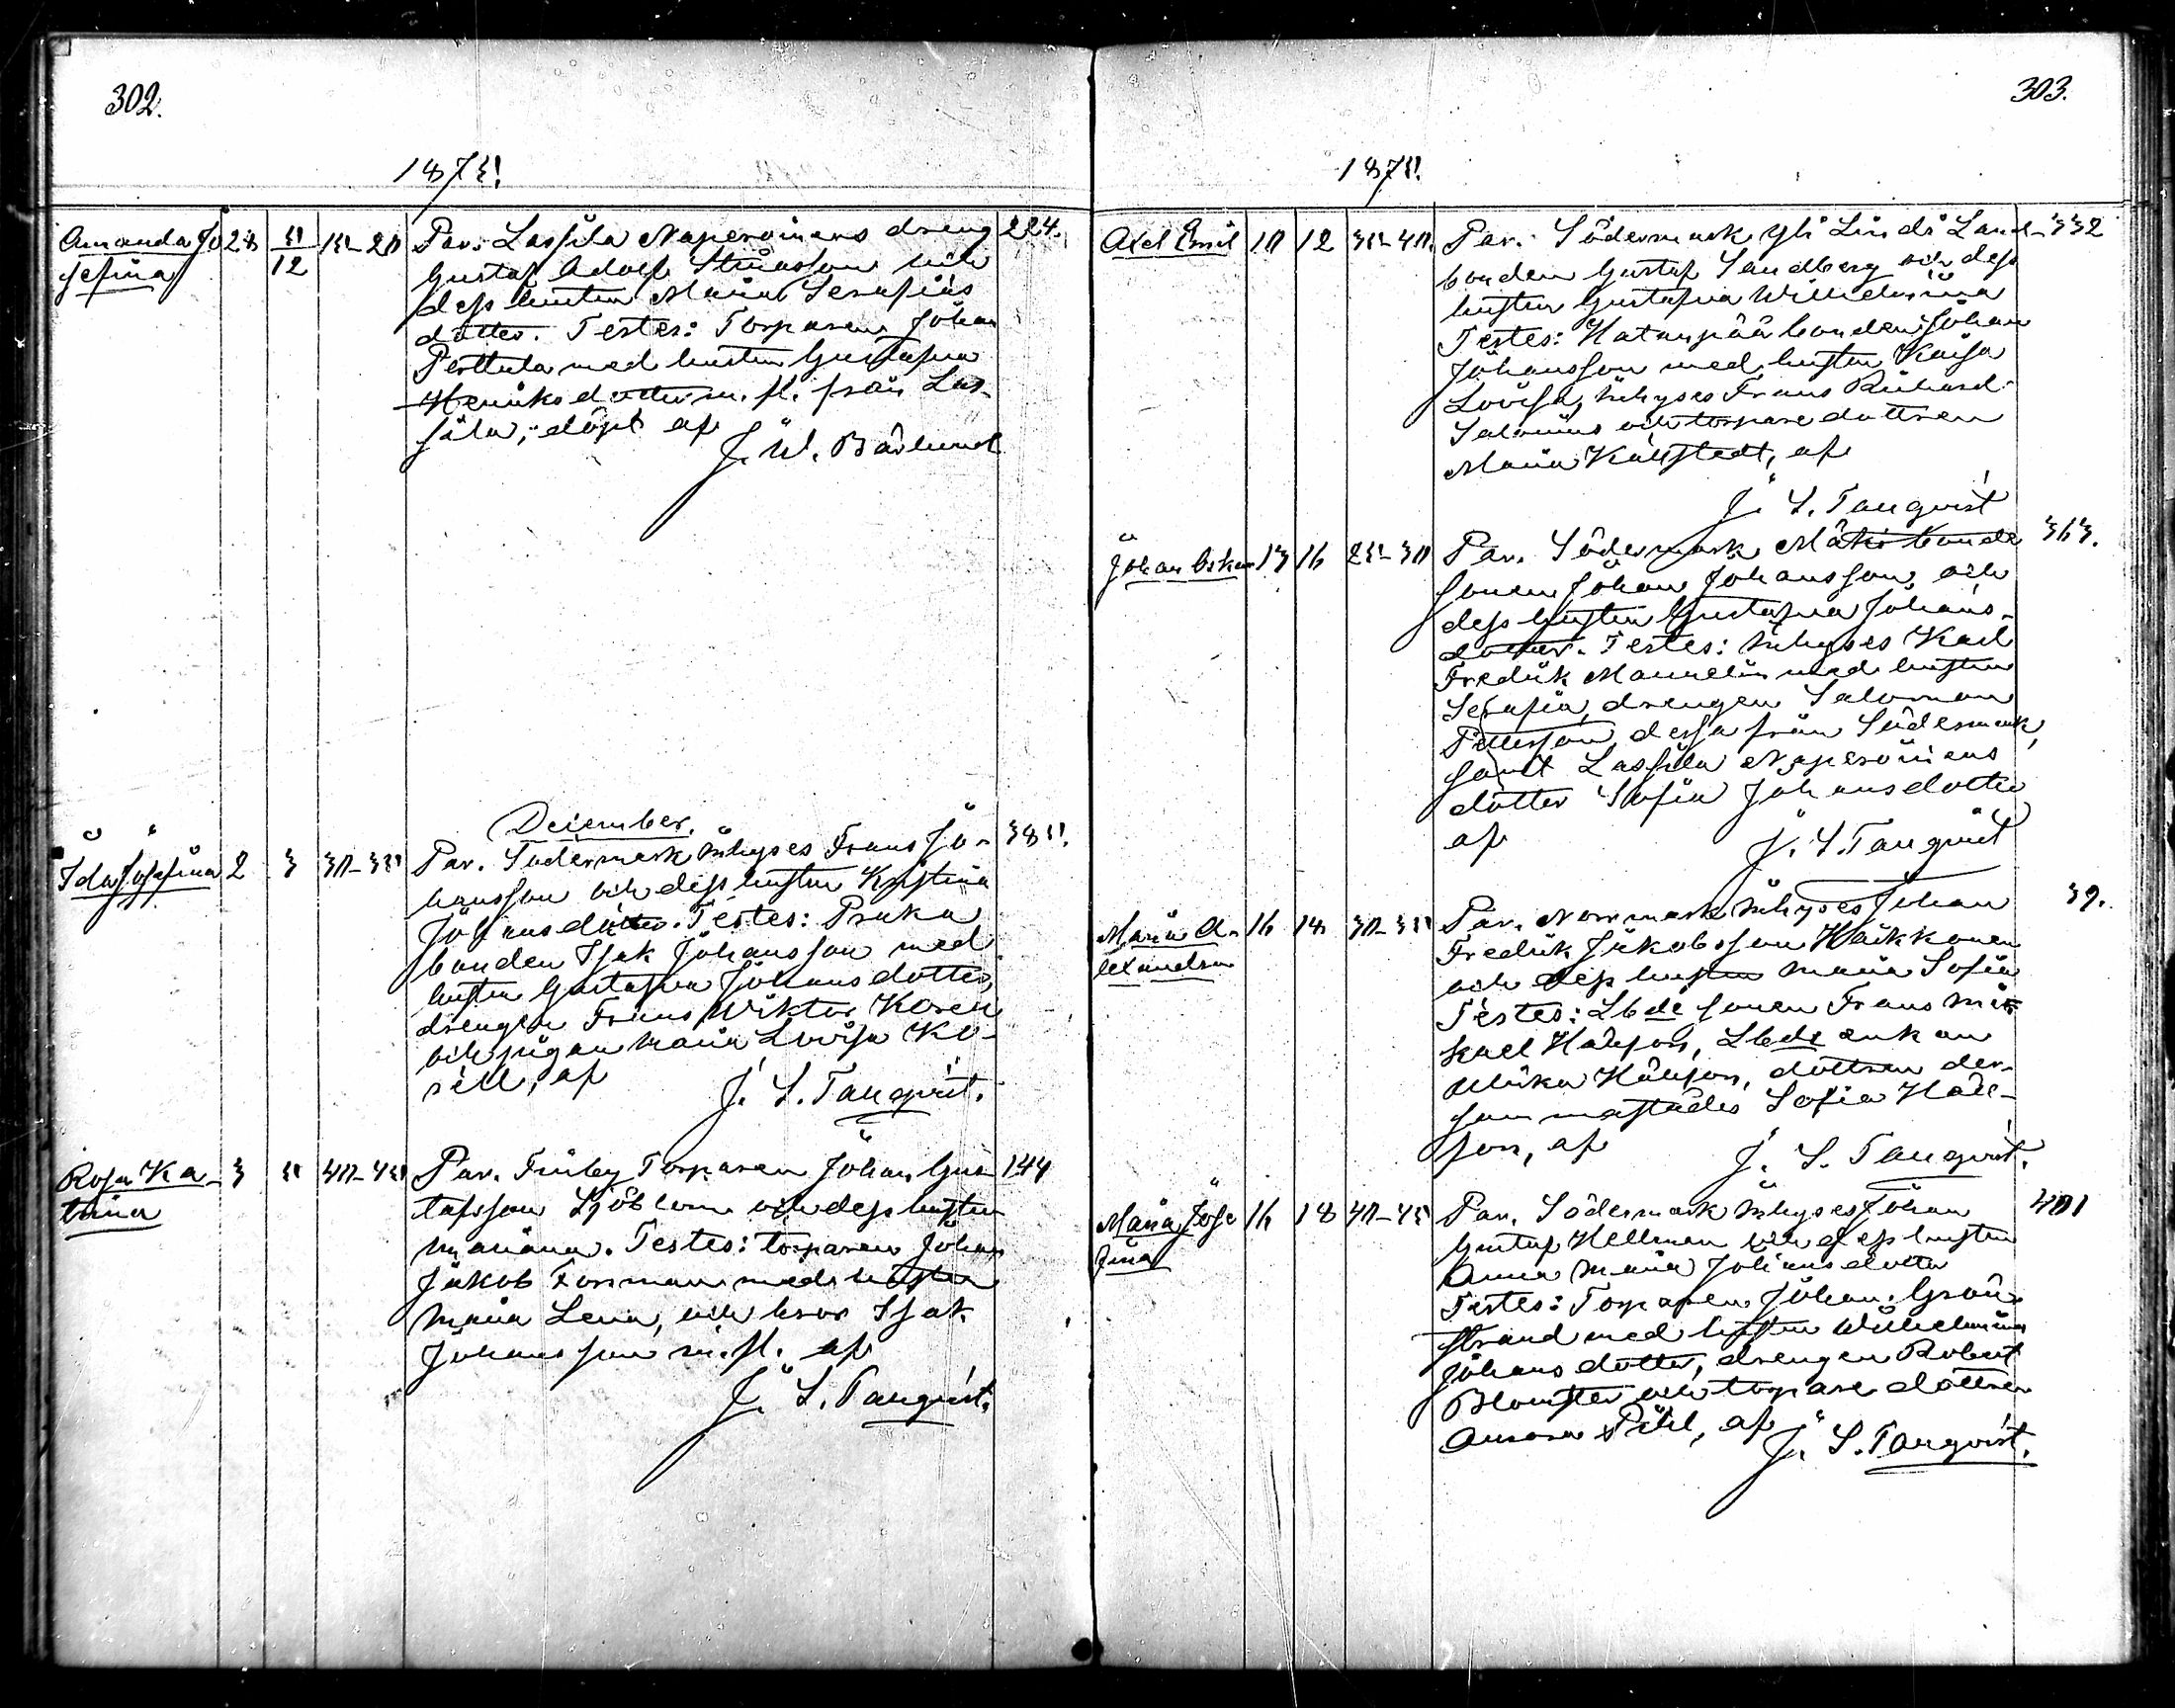 302.
1875.
Amanda Jo-
sefina
28
5/12
15-20
Par. Lassila Naperöinens dreng
Gustaf Adolf
dess hustru Maria Serafias
dotter. Testes: Torparen Johan
Perttula med hustru Gustafva
Henriksdotter m. fl. från Las-
sila; döpt af
J. W. Bärlund
224.
December.
Ida Josefina
2
3
30-35
Par. Södermark inhyses Frans Jo-
hansson och dess hustru Kristina
Johansdotter. Testes: Pruka
bonden Isak Johansson med
hustru Gustafva Johansdotter,
drengen Frans Wiktor Korell
och pigan Maria Lovisa Ko-
rell, af
J. S. Tanqvist.
385.
Rosa Ka-
trina
3
5
40-45
Par. Finby Torparen Johan Gus-
tafsson Sjöblom och dess hustru
Mariana. Testes: torparen Johan
Jakob Forsman med hustru
Maria Lena, och bror Isak
Johansson m. fl. af
J. S. Tanqvist.
144
303.
1875.
Axel Emil
10
12
35-40.
Par. Södermark Yli Lindi Land-
bonden Gustaf Sandberg och dess
hustru Gustafva Wilhelmina
Testes: Hatanpää bonden Johan
Johansson med hustru Kaisa
Lovisa, inhyses Frans Richard
Salenius och torpare dottren
Maria Källstedt, af
J. S. Tanqvist
332
Johan Oskar
13
16
25-30
Par. Södermark Mäki bonde
sonen Johan Johansson och
dess hustru Gustafva Johans-
dotter. Testes: inhyses Karl
Fredrik Mannelin med hustru
Serafia, drengen Salomon
Pettersson dessa från Södermark,
samt Lassila Naperöinens
dotter Sofia Johansdotter
af
J. S. Tanqvist
363.
Maria A-
lexandra
16
18
30-35
Par. Norrmark inhyses Johan
Fredrik Jakobsson Häikkonen
och dess hustru Maria Sofia
Testes: Lbde sonen Frans Mi-
kael Hällfors, Lbde enkan
Ulrika Hällfors, dottren der-
sammastädes Sofia Häll-
fors, af
J. S. Tanqvist.
39.
Maria Jose-
fina
16
18
40-45
Par. Södermark inhyses Johan
Gustaf Hellman och dess hustru
Anna Maria Johansdotter
Testes: Torparen Johan Grön-
strand med hustru Wilhelmina
Johansdotter, drengen Robert
Blomster och torpare dottren
Aurora Pihl, af
J. S. Tanqvist.
401